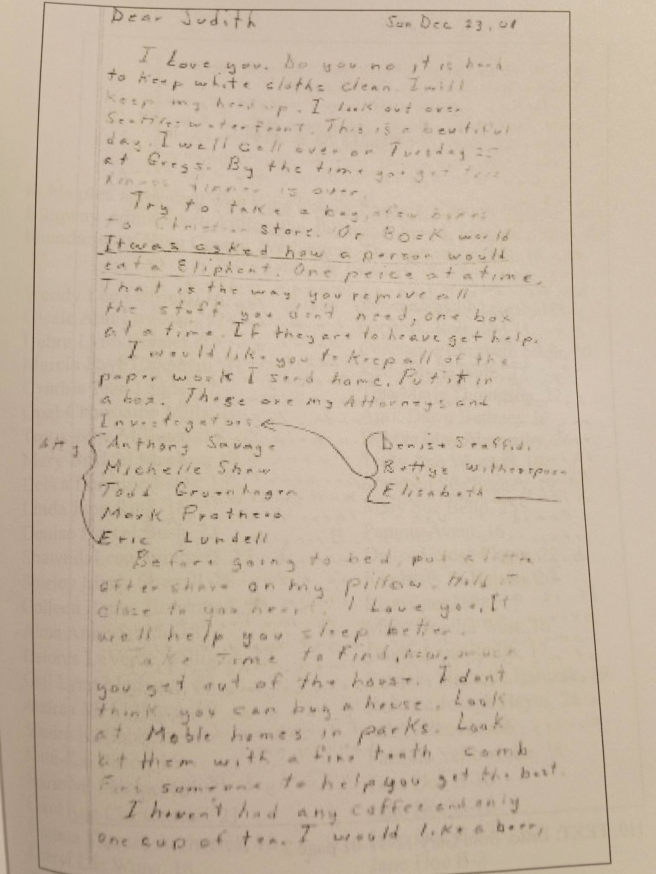 Dear Judith Sun Dec 23, 01
I Love you. Do you no it is hard
to keep white cloths clean. I will
keep my head up. I look out over
Seattles waterfront. This is a beutiful
day. I well call over on Tuesday 25
at Gregs. By the time you get this
Xmass dinner is over.
Try to take a bag, afew boxes
to Christian store. Or Book world
It was asked how a person would
eat a Eliphant. One peice at a time.
That is the way you remove all
the stuff you don't need, one box
at a time. If they are to heave get help.
I would like you to keep all of the
paper work I send home. Put it in
a box. These are my Attorneys and
Investegators
Atty Anthony Savage Denise Scaffidi
Michelle Shaw Bettye witherspoon
Todd Gruenhagen Elisabeth
Mark Prothero
Eric Lundell
Before going to bed, put a little
after shave on my pillow. Hold it
close to you heart. I Love you, It
well help you sleep better.
Take Time to find, how much
you get out of the house. I dont
think you can buy a house. Look
at Moble homes in parks. Look
at them with a fine tooth comb
Find someone to help you get the best.
I haven't had any coffee and only
one cup of tea. I would like a beer,